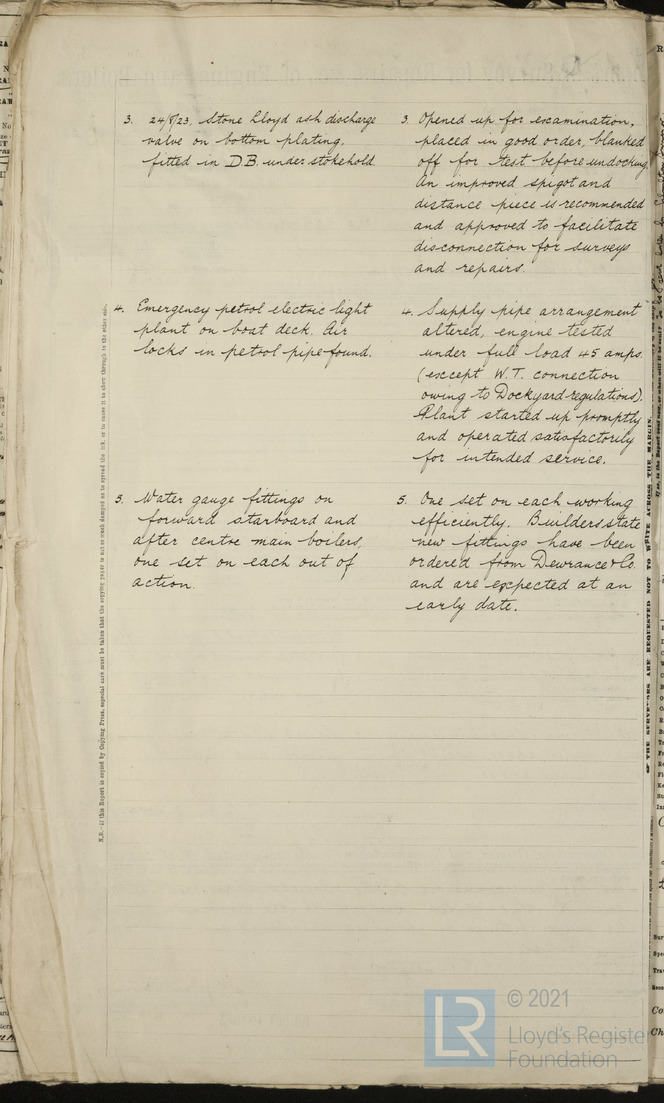 3. 24/8/23. Stone Lloyd ash discharge
valve on bottom plating.
fitted in D.B. under stokehold
3. Opened up for examination,
placed in good order, blanked
off for test before undocking.
An improved spigot and
distance piece is recommended
and approved to facilitate
disconnection for surveys
and repairs.
4. Emergency petrol electric light
plant on boat deck. Air
locks in petrol pipe found.
4. Supply pipe arrangement
altered, engine tested
under full load 45 amps.
(except W.T. connection
owing to Dockyard regulations).
Plant started up promptly
and operated satisfactorily
for intended service.
5. Water gauge fittings on
forward starboard and
after centre main boilers,
one set on each out of
action.
5. One set on each working
efficiently. Builders state
new fittings have been
ordered from Dewrance & Co.
and are expected at an
early date.
N.B.—If this Report is copied by Copying Press, especial care must be taken that the copying paper is not so much damped as to spread the ink, or to cause it to show through to the other side.
THE SURVEYORS ARE REQUESTED NOT TO WRITE ACROSS THE MARGIN.
© 2021
Lloyd's Register
Foundation
LR